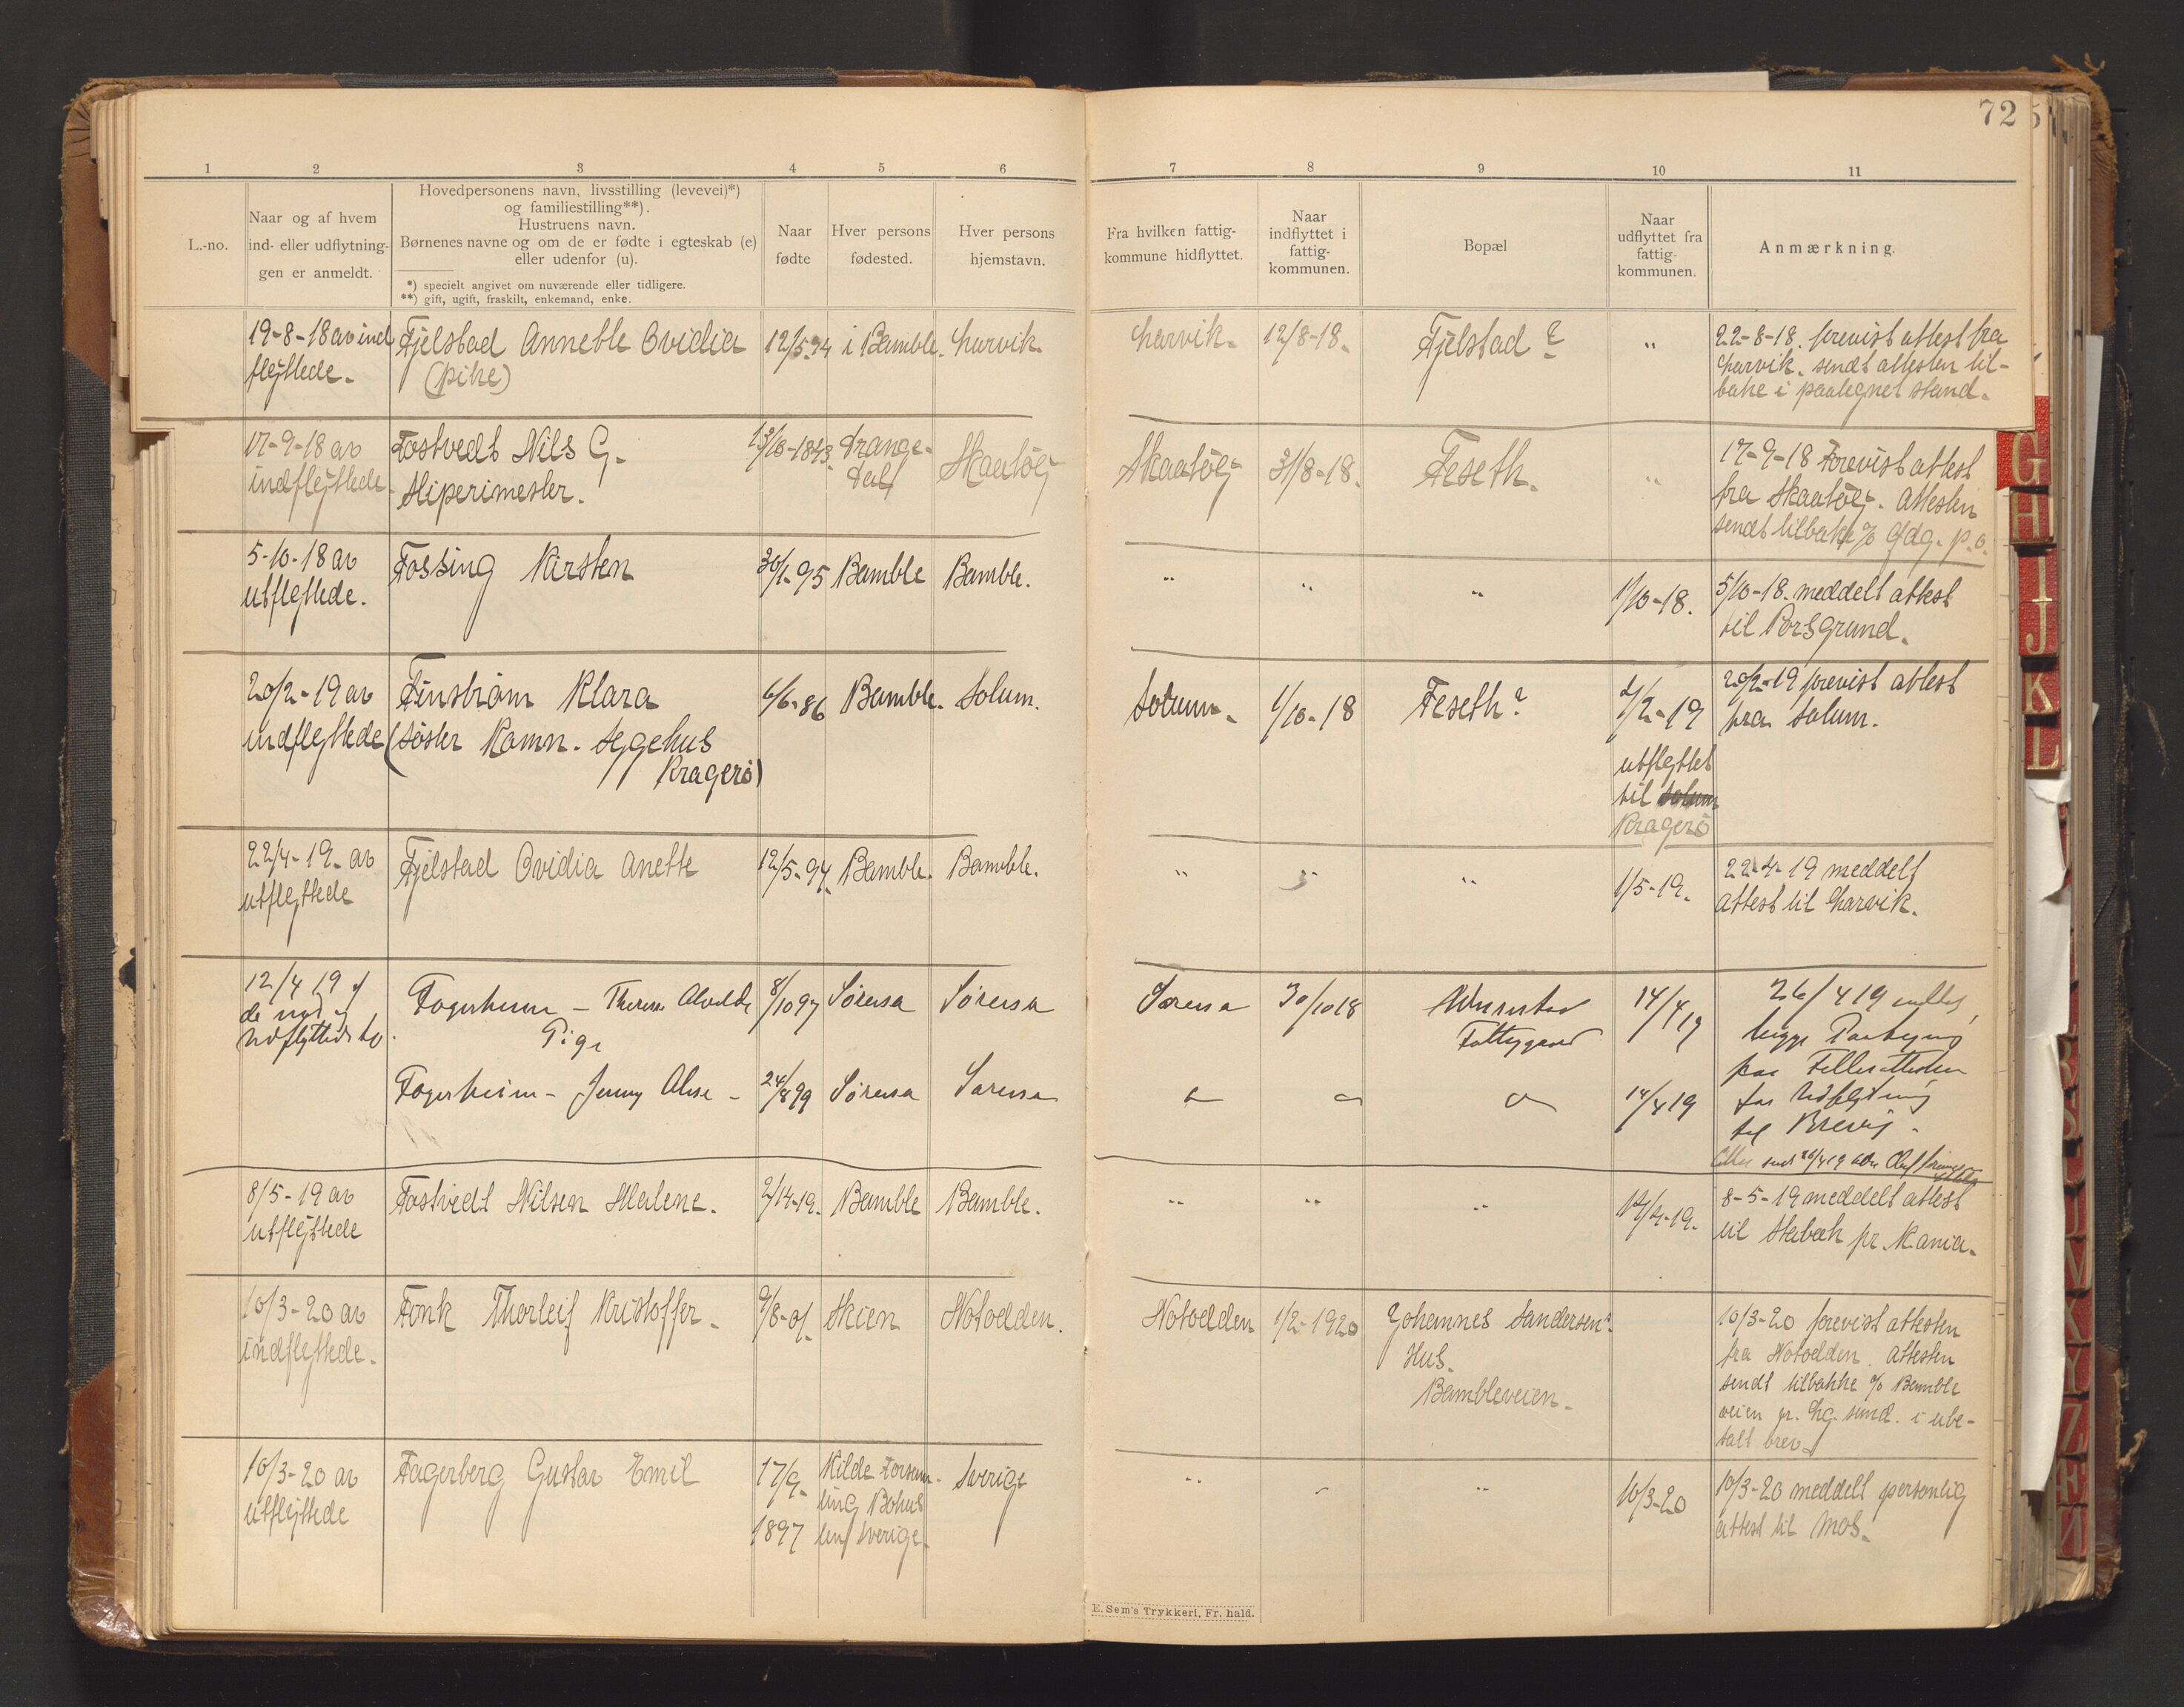 72
1 2 3 4 5 6 7 8 9 10 11
L.-no.
Naar og af hvem
ind- eller udflytnin-
gen er anmeldt.
Hovedpersonens navn, livsstilling (levevei)*)
og familiestilling**).
Hustruens navn.
Børnenes navne og om de er fødte i egteskab (e)
eller udenfor (u).
*) specielt angivet om nuværende eller tidligere.
**) gift, ugift, fraskilt, enkemand, enke.
Naar
fødte
Hver persons
fødested.
Hver persons
hjemstavn.
Fra hvilken fattig-
kommune hidflyttet.
Naar
indflyttet i
fattig-
kommunen.
Bopæl
Naar
udflyttet fra
fattig-
kommunen.
Anmærkning.
19-8-18 av ind
flyttede.
Fjelstad Annette Ovidia
(pike)
12/5-94
i Bamble.
Larvik.
Larvik.
12/8-18.
Fjelstad?
"
22-8-18. forevist attest fra
Larvik. sendt attesten til-
bake i paategnet stand.
17-9-18 av
indflyttede.
Fostvedt Nils G.
Sliperimester.
13/10-1843.
Drange-
dal
Skaatøy
Skaatøy
31/8-18.
Feseth.
"
17-9-18 Forevist attest
fra Skaatøy. Attesten
sendt tilbake % Gdg. p.o.
5-10-18 av
utflyttede.
Fossing Kirsten
30/1-95
Bamble
Bamble.
" " "
1/10-18.
5/10-18. meddelt attest
til Porsgrund.
20/2-19 av
indflyttede
Finstrøm Klara
(søster Komn. Sygehus
Kragerø)
6/6-86
Bamble.
Solum.
Solum.
1/10-18
Feseth?
1/2-19
utflyttet
til Solum
Kragerø
20/2-19 forevist attest
fra Solum.
22/4-19. av
utflyttede
Fjelstad Ovidia Anette
12/5-94.
Bamble.
Bamble.
" "
1/5-19.
22-4-19 meddelt
attest til Larvik.
12/4 19 af
Fogerheim - Therese Alvilde
Pige
8/10 97
Tørensa
Tørensa
30/10 18
14/4 19
26/4 19
paa Fellesattesten
for Udflytning
til Brevig.
Fogerheim - Jenny
24/8 99
14/4 19
8/5-19 av
utflyttede
Fostvedt Nilsen Malene.
2/14-19.
Bamble
Bamble.
" " "
14/4-19.
8-5-19 meddelt attest
til Stabæk pr. Kania.
10/3-20 av
indflyttede.
Fonk Thorleif Kristoffer.
9/8-01.
Skien
Notodden.
Notodden
1/2-1920
Johannes Sandersen's
Hus.
Bambleveien.
10/3-20 forevist attesten
fra Notodden. Attesten
sendt tilbakke % Bamble
veien pr. Lg.sund. i ube-
talt brev.
10/3-20 av
utflyttede
Fagerberg Gustav Emil
17/9-
1897
Kilde Forsam-
ling Bohus
len Sverige.
Sverige
" "
10/3-20
10/3-20 meddelt personlig
attest til Mos.
E. Sem's Trykkeri, Fr. hald.
G
H
I
J
K
L